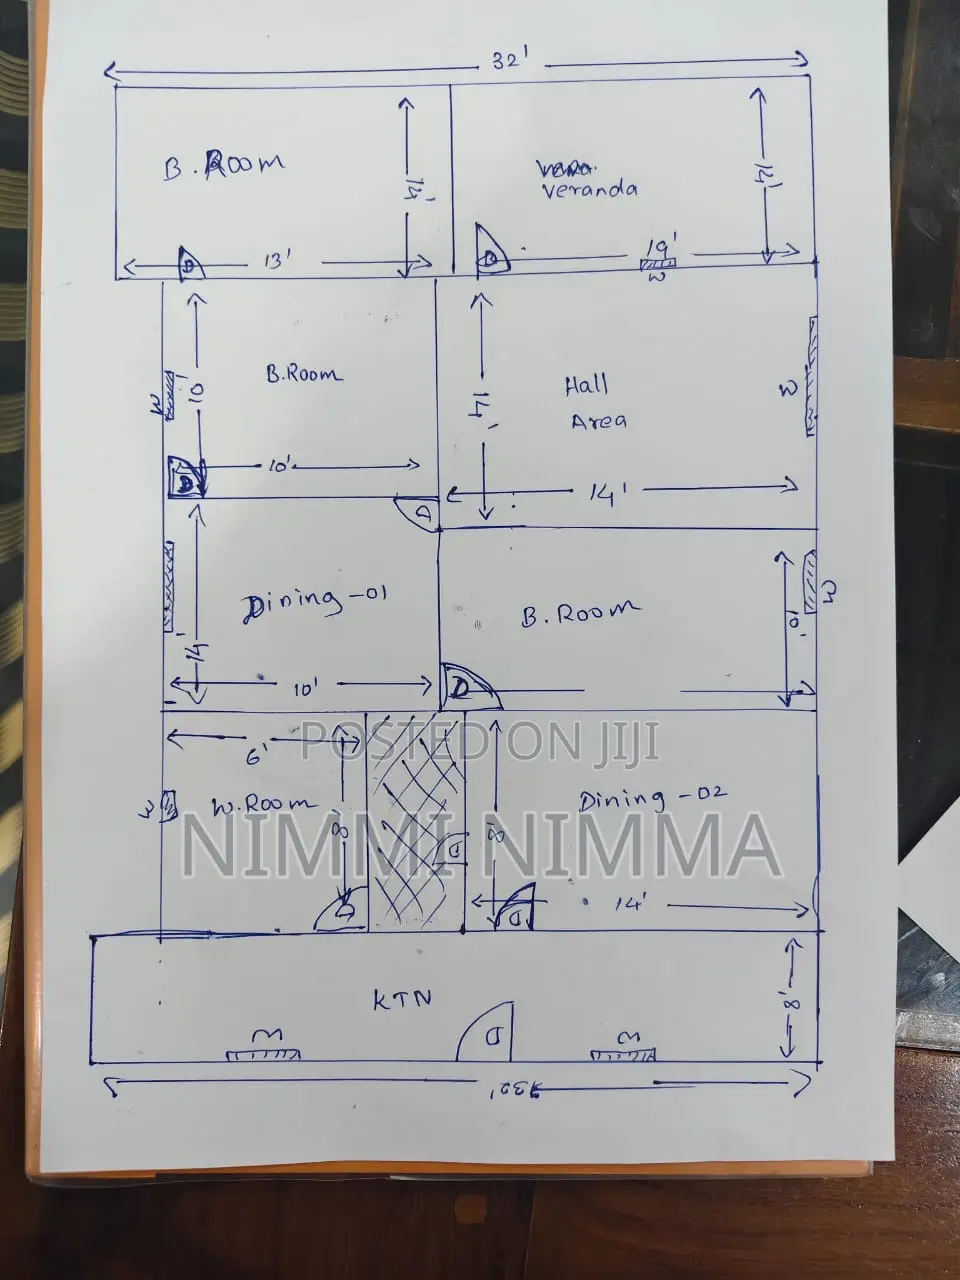 32'
B. Room
14'
Veranda
14'
D
13'
D
19'
W
10'
W
B.Room
14'
Hall
Area
W
D
10'
14'
D
Dining -01
B. Room
W
10'
14'
10'
D
6'
W
W.Room
8'
8'
Dining -02
POSTED ON JIJI
NIMMI NIMMA
D
D
D
14'
KTN
8'
W
D
W
32'